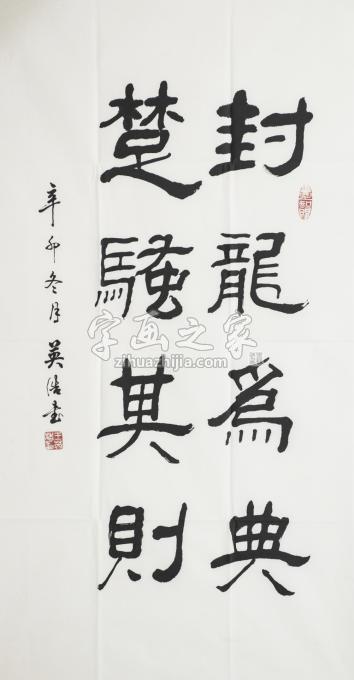 封龍爲典
楚騷其則
辛卯冬月英浩書
字画之家
zihuazhijia.com